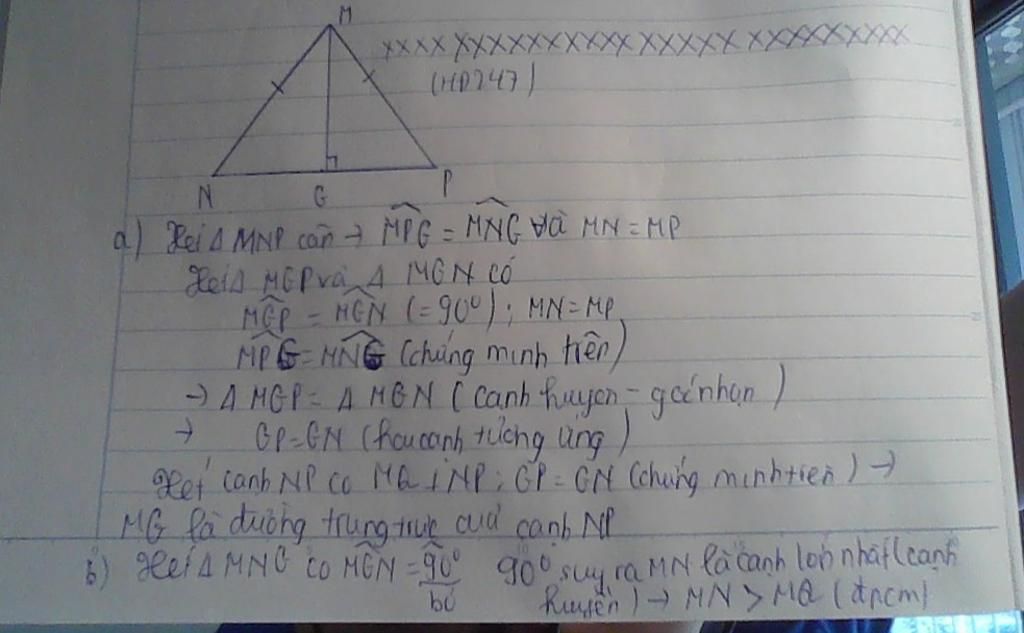 M
xxxx xxxxxxxxxxxx xxxxxx xxxxxxxxxx
(HD247)
N G P
a) Xét Δ MNP cân → MPG = MNG và MN = MP
Xét Δ MGP và Δ MGN có
MGP = MGN (= 90°); MN = MP
MPG = MNG (chứng minh trên)
→ Δ MGP = Δ MGN (cạnh huyền - góc nhọn)
→ GP = GN (hai cạnh tương ứng)
Xét cạnh NP có MG ⊥ NP; GP = GN (chứng minh trên) →
MG là đường trung trực của cạnh NP
b) Xét Δ MNG có MGN = 90° 90° suy ra MN là cạnh lớn nhất (cạnh
bỏ huyền) → MN > MG (đpcm)